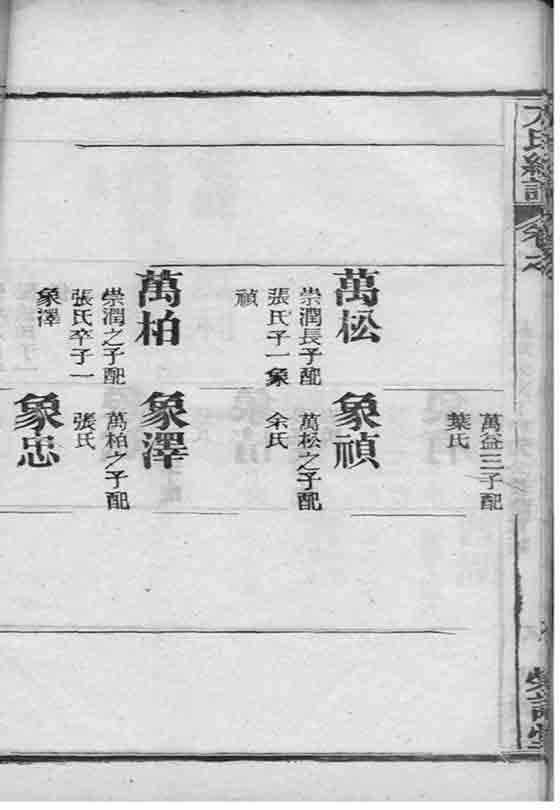 氏
卷之
萬松
崇潤長子配
張氏子一象
禎
萬柏
崇潤之子配
張氏卒子一
象澤
萬益三子配
葉氏
象禎
萬松之子配
余氏
象澤
萬柏之子配
張氏
象忠